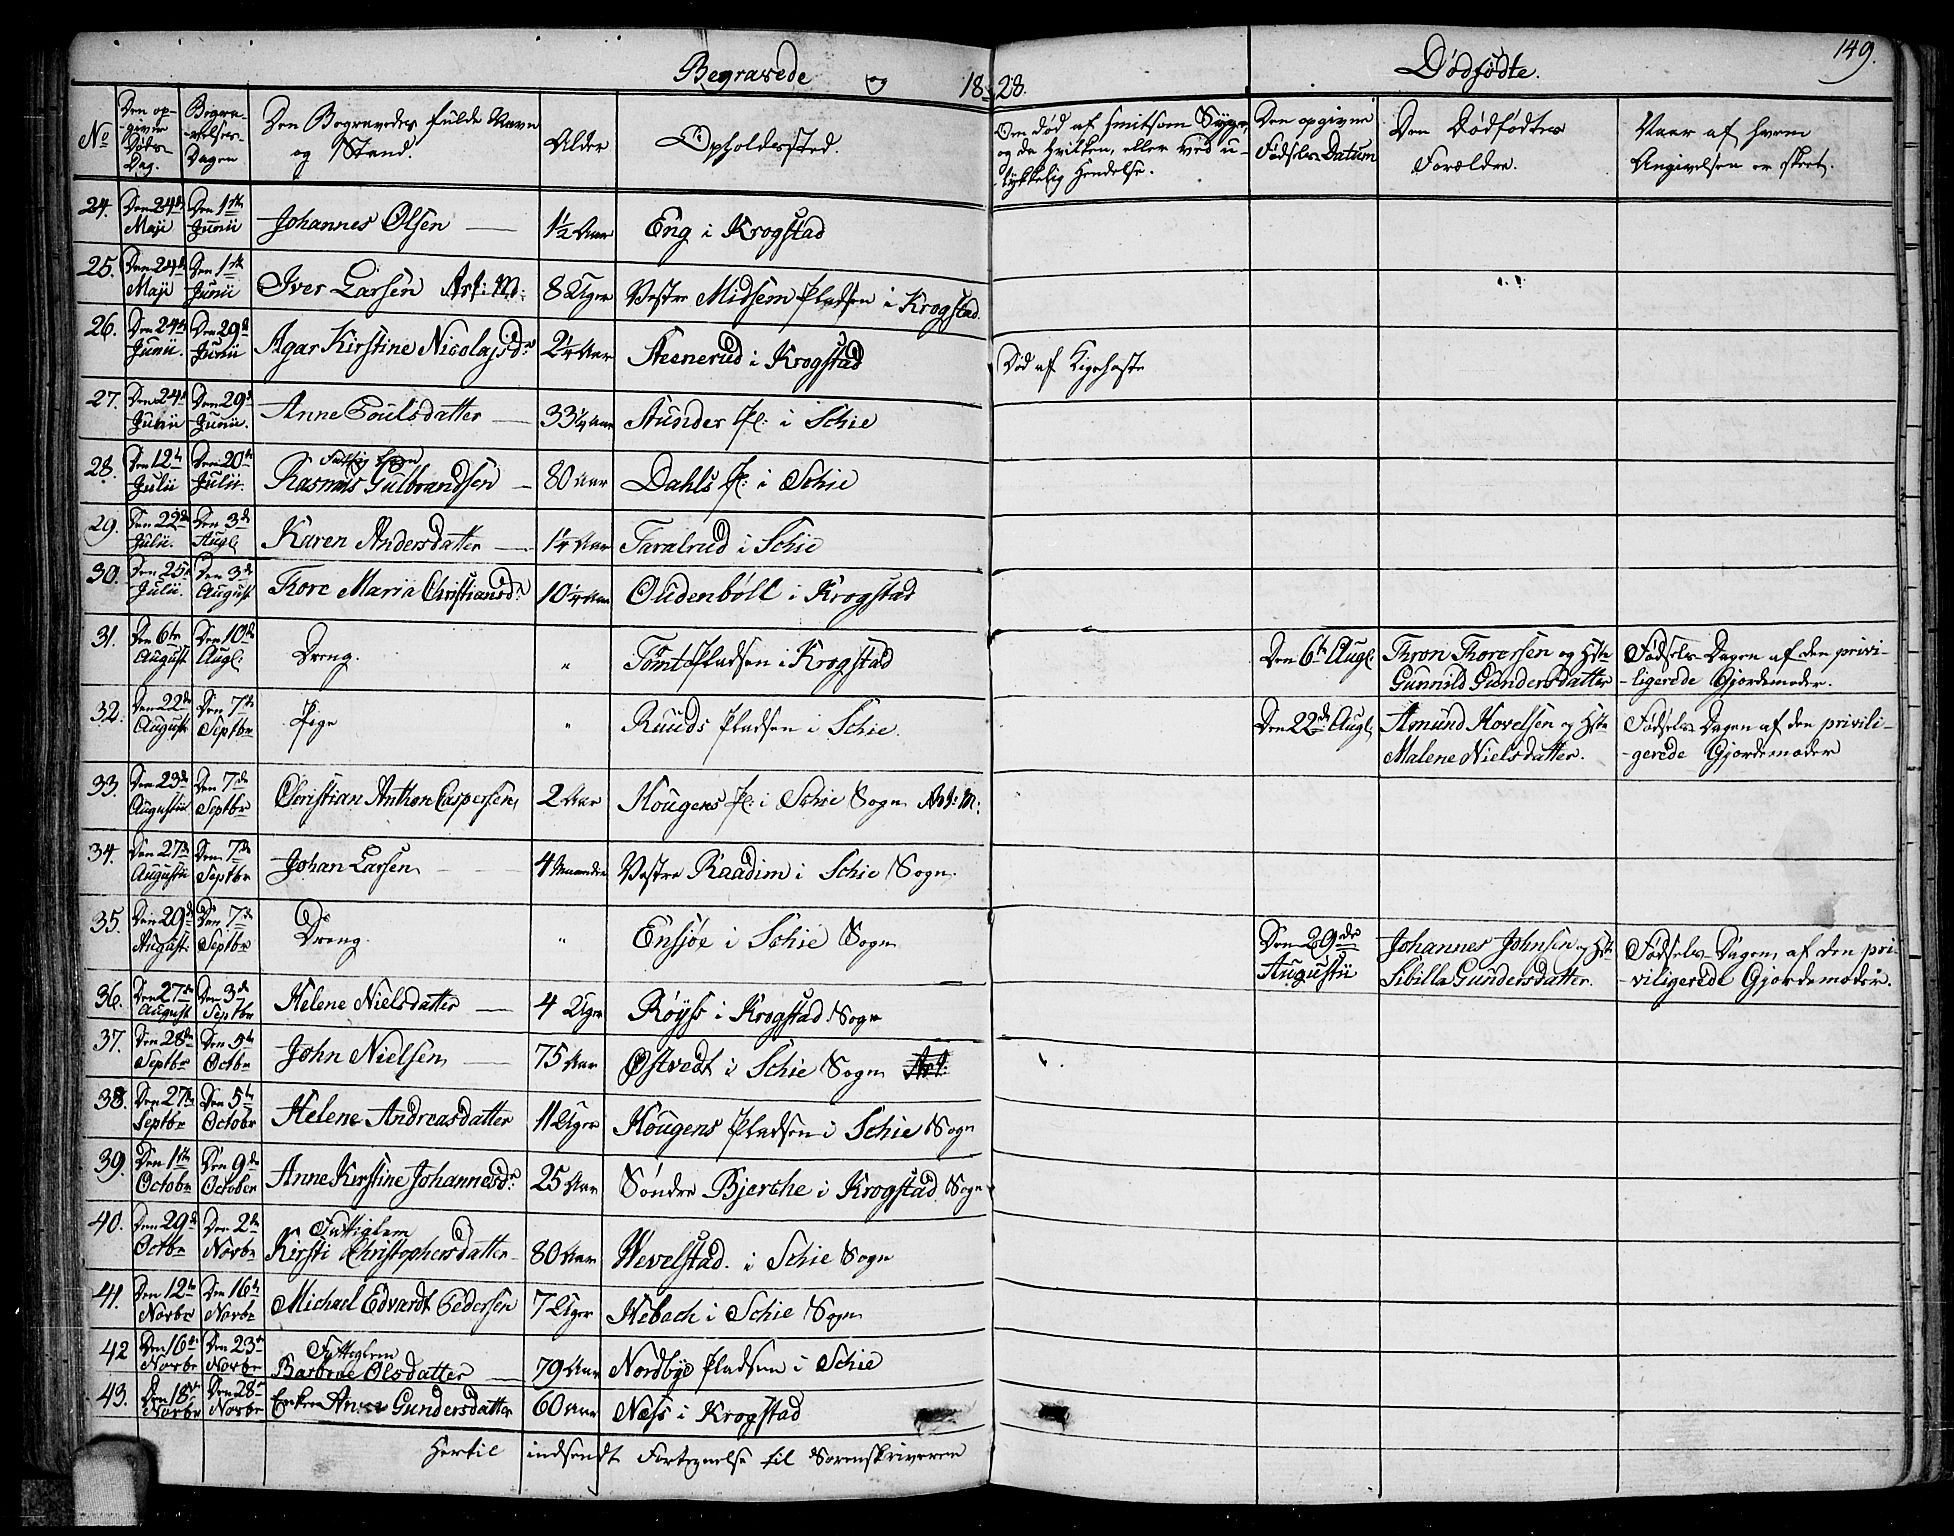 Begravede og 1828. Dødfødte. 149.
No Den opgivne Døds Dag. Begravelses Dagen Den Begravedes fulde Navn og Stand. Alder Opholdssted. Om død af smitsom Syge, og da hvilken, eller ved ulykkelig Hendelse. Den opgivne Fødsels Datum Den Dødfødtes Forældre. Naar af hvem Angivelsen er skeet.
24. Den 24de Maji Den 1ste Junii Johannes Olsen 1½ Aar Eng i Krogstad
25. Den 24de Maji Den 1ste Junii Iver Larsen 8 Uger Vestre Midsem Pladsen i Krogstad
26. Den 24de Junii. Den 29de Junii Agar Kirstine Nicolajsdr 2¼ Aar Steenerud i Krogstad Død af Kighoste
27. Den 24de Junii Den 29de Junii. Anne Poulsdatter 33¼ Aar Stunder Pl: i Schie
28. Den 12te Julii Den 20de Julii. Rasmus Gulbrandsen 80 Aar Dahls Pl: i Schie
29. Den 22de Julii. Den 3de Augt Karen Andersdatter 1¼ Aar Taralrud i Schie
30. Den 25de Julii. Den 3de August Thore Maria Christiansdr 10¼ Aar Oudenböll i Krogstad
31. Den 6te August Den 10de Augt: Dreng. " Tomt Pladsen i Krogstad Den 6te Augt. Thron Thorersen og Hst: Gunnild Gundersdatter Fødsels Dagen af den priviligerede Gjordemoder.
32. Den 22de August Den 7de Septbr Pige " Ruuds Pladsen i Schie. Den 22de Augt. Asmund Hovelsen og Hst: Malene Nielsdatter. Fødsels Dagen af den priviligerede Gjordemoder
33. Den 23de Augustii Den 7de Septbr Christian Anthon Caspersen, 2 Aar Hougens Pl: i Schie Sogn
34. Den 27de Augustii Den 7de Septbr Johan Larsen 4 Maaneder Vestre Raadim i Schie Sogn
35. Den 29de August Den 7de Septbr Dreng. " Ensjøe i Schie Sogn Den 29de Augustii Johannes Johnsen og Hst: Sibilla Gundersdatter. Fødsels Dagen af den priviligerede Gjordemoder.
36. Den 27de August Den 3de Septbr Helene Nielsdatter 4 Uger Røyss i Krogstad Sogn
37. Den 28de Septbr Den 5te Octbr John Nielsen 75 Aar Østvedt i Schie Sogn
38. Den 27de Septbr Den 5te Octobr Helene Andreasdatter 11 Uger Hougens Pladsen i Schie Sogn
39. Den 1ste Octobr Den 9de October Anne Kirstine Johannesdr 25 Aar Søndre Bjerche i Krogstad Sogn
40. Den 29de Octbr Den 2den Novbr Fattiglem Kirsti Christophersdatter 80 Aar Wevelstad i Schie Sogn
41. Den 12te Novbr Den 16te Novbr Michael Edvardt Pedersen 7 Uger Hebach i Schie Sogn
42 Den 16de Novbr Den 23de Novbr Fattiglem Barbroe Olsdatter 79 Aar Nordbye Pladsen i Schie
43. Den 18de Novbr Den 28de Novbr Enken Anne Gundersdatter 60 Aar Næss i Krogstad
Hertil indsendt Fortegnelse til Sorenskriveren